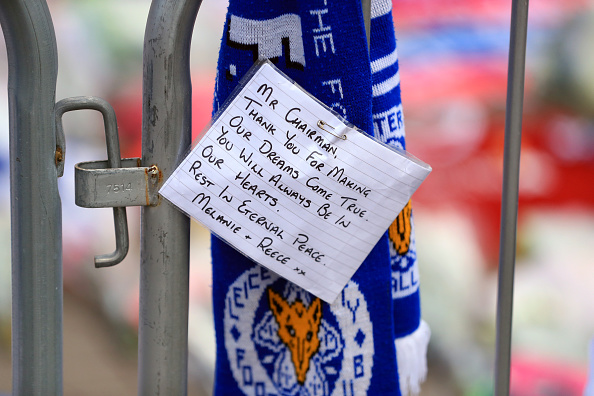 THE FO
MR CHAIRMAN,
THANK YOU FOR MAKING
OUR DREAMS COME TRUE.
YOU WILL ALWAYS BE IN
OUR HEARTS.
REST IN ETERNAL PEACE.
MELANIE + REECE xx
7514
LEICE
FOO
B
TER
ALL